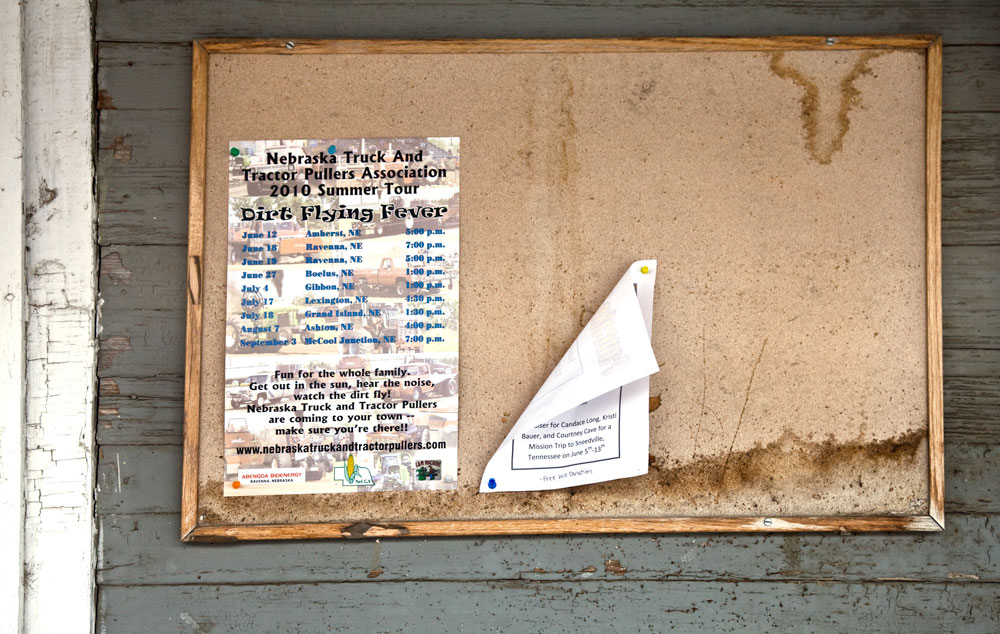 Nebraska Truck And
Tractor Pullers Association
2010 Summer Tour
Dirt Flying Fever
June 12 Amherst, NE 5:00 p.m.
June 18 Ravenna, NE 7:00 p.m.
June 19 Ravenna, NE 5:00 p.m.
June 27 Boelus, NE 1:00 p.m.
July 4 Gibbon, NE 1:00 p.m.
July 17 Lexington, NE 4:30 p.m.
July 18 Grand Island, NE 1:30 p.m.
August 7 Ashton, NE 4:00 p.m.
September 3 McCool Junction, NE 7:00 p.m.
Fun for the whole family.
Get out in the sun, hear the noise,
watch the dirt fly!
Nebraska Truck and Tractor Pullers
are coming to your town --
make sure you're there!!
www.nebraskatruckandtractorpullers.com
ABENGOA BIOENERGY
RAVENNA, NEBRASKA
NeCGA
for Candace Long, Kristi
Bauer, and Courtney Cave for a
Mission Trip to Sneedville,
Tennessee on June 5th-13th
-Free Will Donation